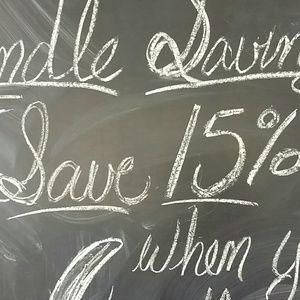 ndle Saving
Save 15%
when y